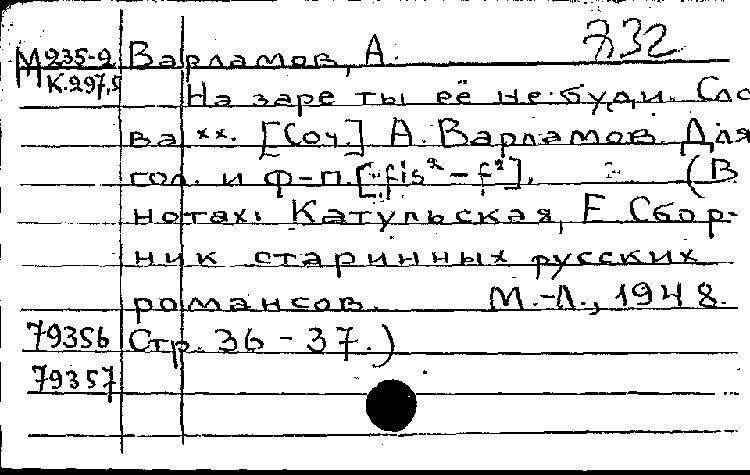 732
М 235-2 Варламов, А.
К.297,5 На заре ты её не буди. Сло
ва хх. [Соч.] А. Варламов. Для
гол. и ф-п. [fis² - f²]. (В
нотах: Катульская, Е Сбор-
ник старинных русских
романсов. М.-Л., 1948.
79356 Стр. 36 - 37.)
79357